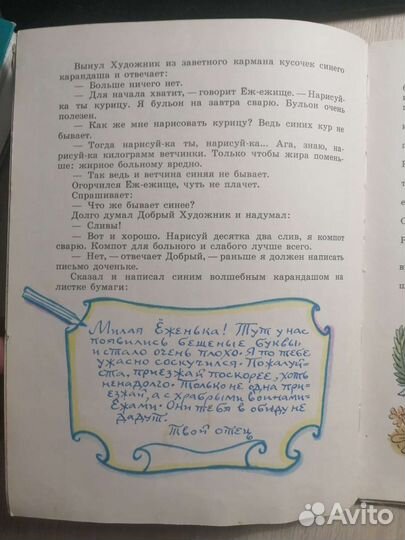 Вынул Художник из заветного кармана кусочек синего
карандаша и отвечает:
— Больше ничего нет.
— Для начала хватит, — говорит Еж-ежище. — Нарисуй-
ка ты курицу. Я бульон на завтра сварю. Бульон очень
полезен.
— Как же мне нарисовать курицу? Ведь синих кур не
бывает.
— Тогда нарисуй-ка ты, нарисуй-ка... Ага, знаю, на-
рисуй-ка килограмм ветчинки. Только чтобы жира помень-
ше: жирное больному вредно.
— Так ведь и ветчина синяя не бывает.
Огорчился Еж-ежище, чуть не плачет.
Спрашивает:
— Что же бывает синее?
Долго думал Добрый Художник и надумал:
— Сливы!
— Вот и хорошо. Нарисуй десятка два слив, я компот
сварю. Компот для больного и слабого лучше всего.
— Нет, — отвечает Добрый, — раньше я должен написать
письмо доченьке.
Сказал и написал синим волшебным карандашом на
листке бумаги:
Милая Ёженька! Тут у нас
появились бешеные буквы,
и стало очень плохо. Я по тебе
ужасно соскучился. Пожалуй-
ста, приезжай поскорее, хоть
ненадолго. Только не одна при-
езжай, а с храбрыми воинами-
Ежами. Они тебя в обиду не
дадут.
Твой отец
Avito